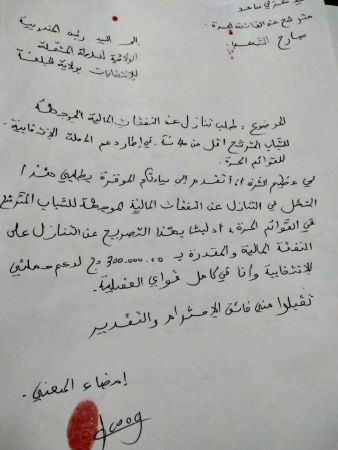 مترشح عن القائمة الحرة.
صارخ الشعب
إلى السيد رئيس المندوبية
الولائية للسلطة المستقلة
للإنتخابات بولاية
الموضوع: طلب تنازل عن النفقات المالية الموجهة
للشباب المترشح أقل من 40 سنة. في إطار دعم الحملة الإنتخابية.
للقوائم الحرة.
لي عظيم الشرف أن أتقدم إلى سيادتكم الموقرة بطلبي هذا
المتمثل في التنازل عن النفقات المالية الموجهة للشباب المترشح
في القوائم الحرة، بهذا التصريح عن التنازل على
النفقة المالية والمقدرة بـ 300.000.00 دج لدعم حملتي
الإنتخابية وأنا في كامل قواي العقلية.
تقبلوا مني فائق الإحترام والتقدير
إمضاء المعني.